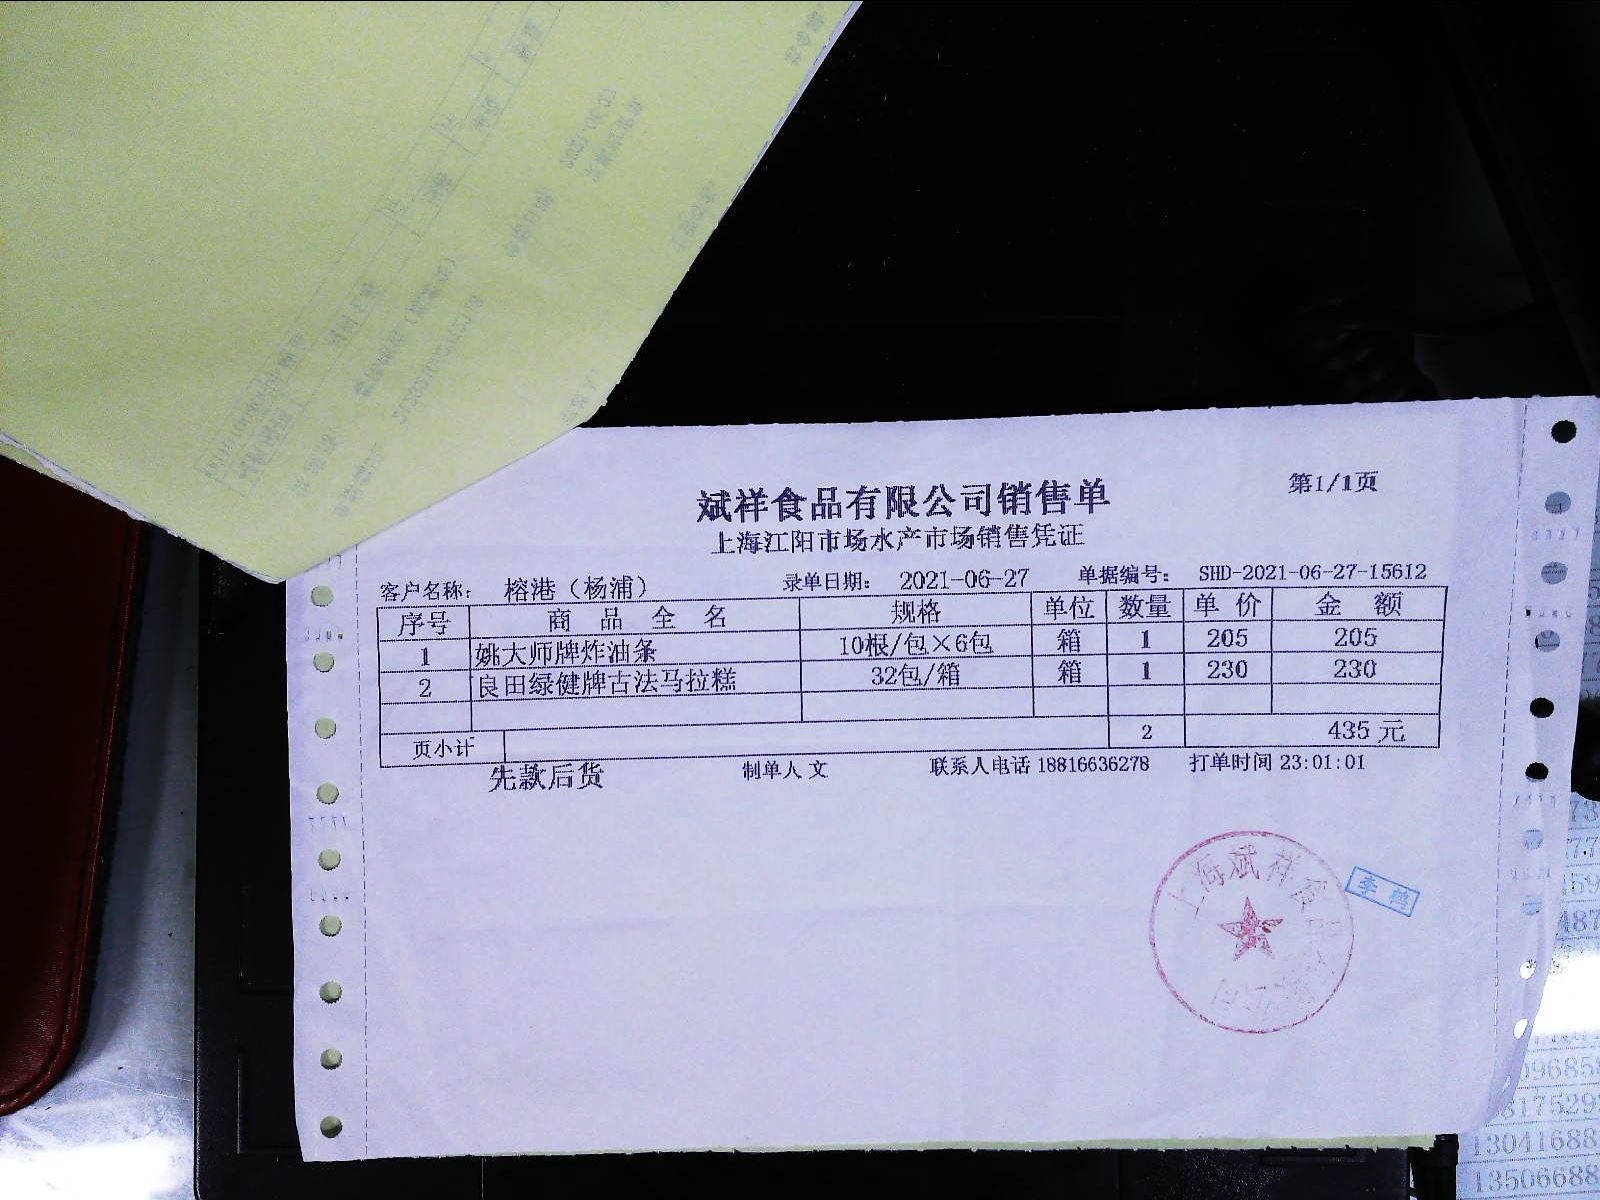 斌祥食品有限公司销售单
第1/1页
上海江阳市场水产市场销售凭证
客户名称： 榕港（杨浦） 录单日期： 2021-06-27 单据编号： SHD-2021-06-27-15612
序号 商品全名 规格 单位 数量 单价 金额
1 姚大师牌炸油条 10根/包×6包 箱 1 205 205
2 良田绿健牌古法马拉糕 32包/箱 箱 1 230 230
页小计 2 435 元
先款后货 制单人 文 联系人电话 18816636278 打单时间 23:01:01
上海斌祥